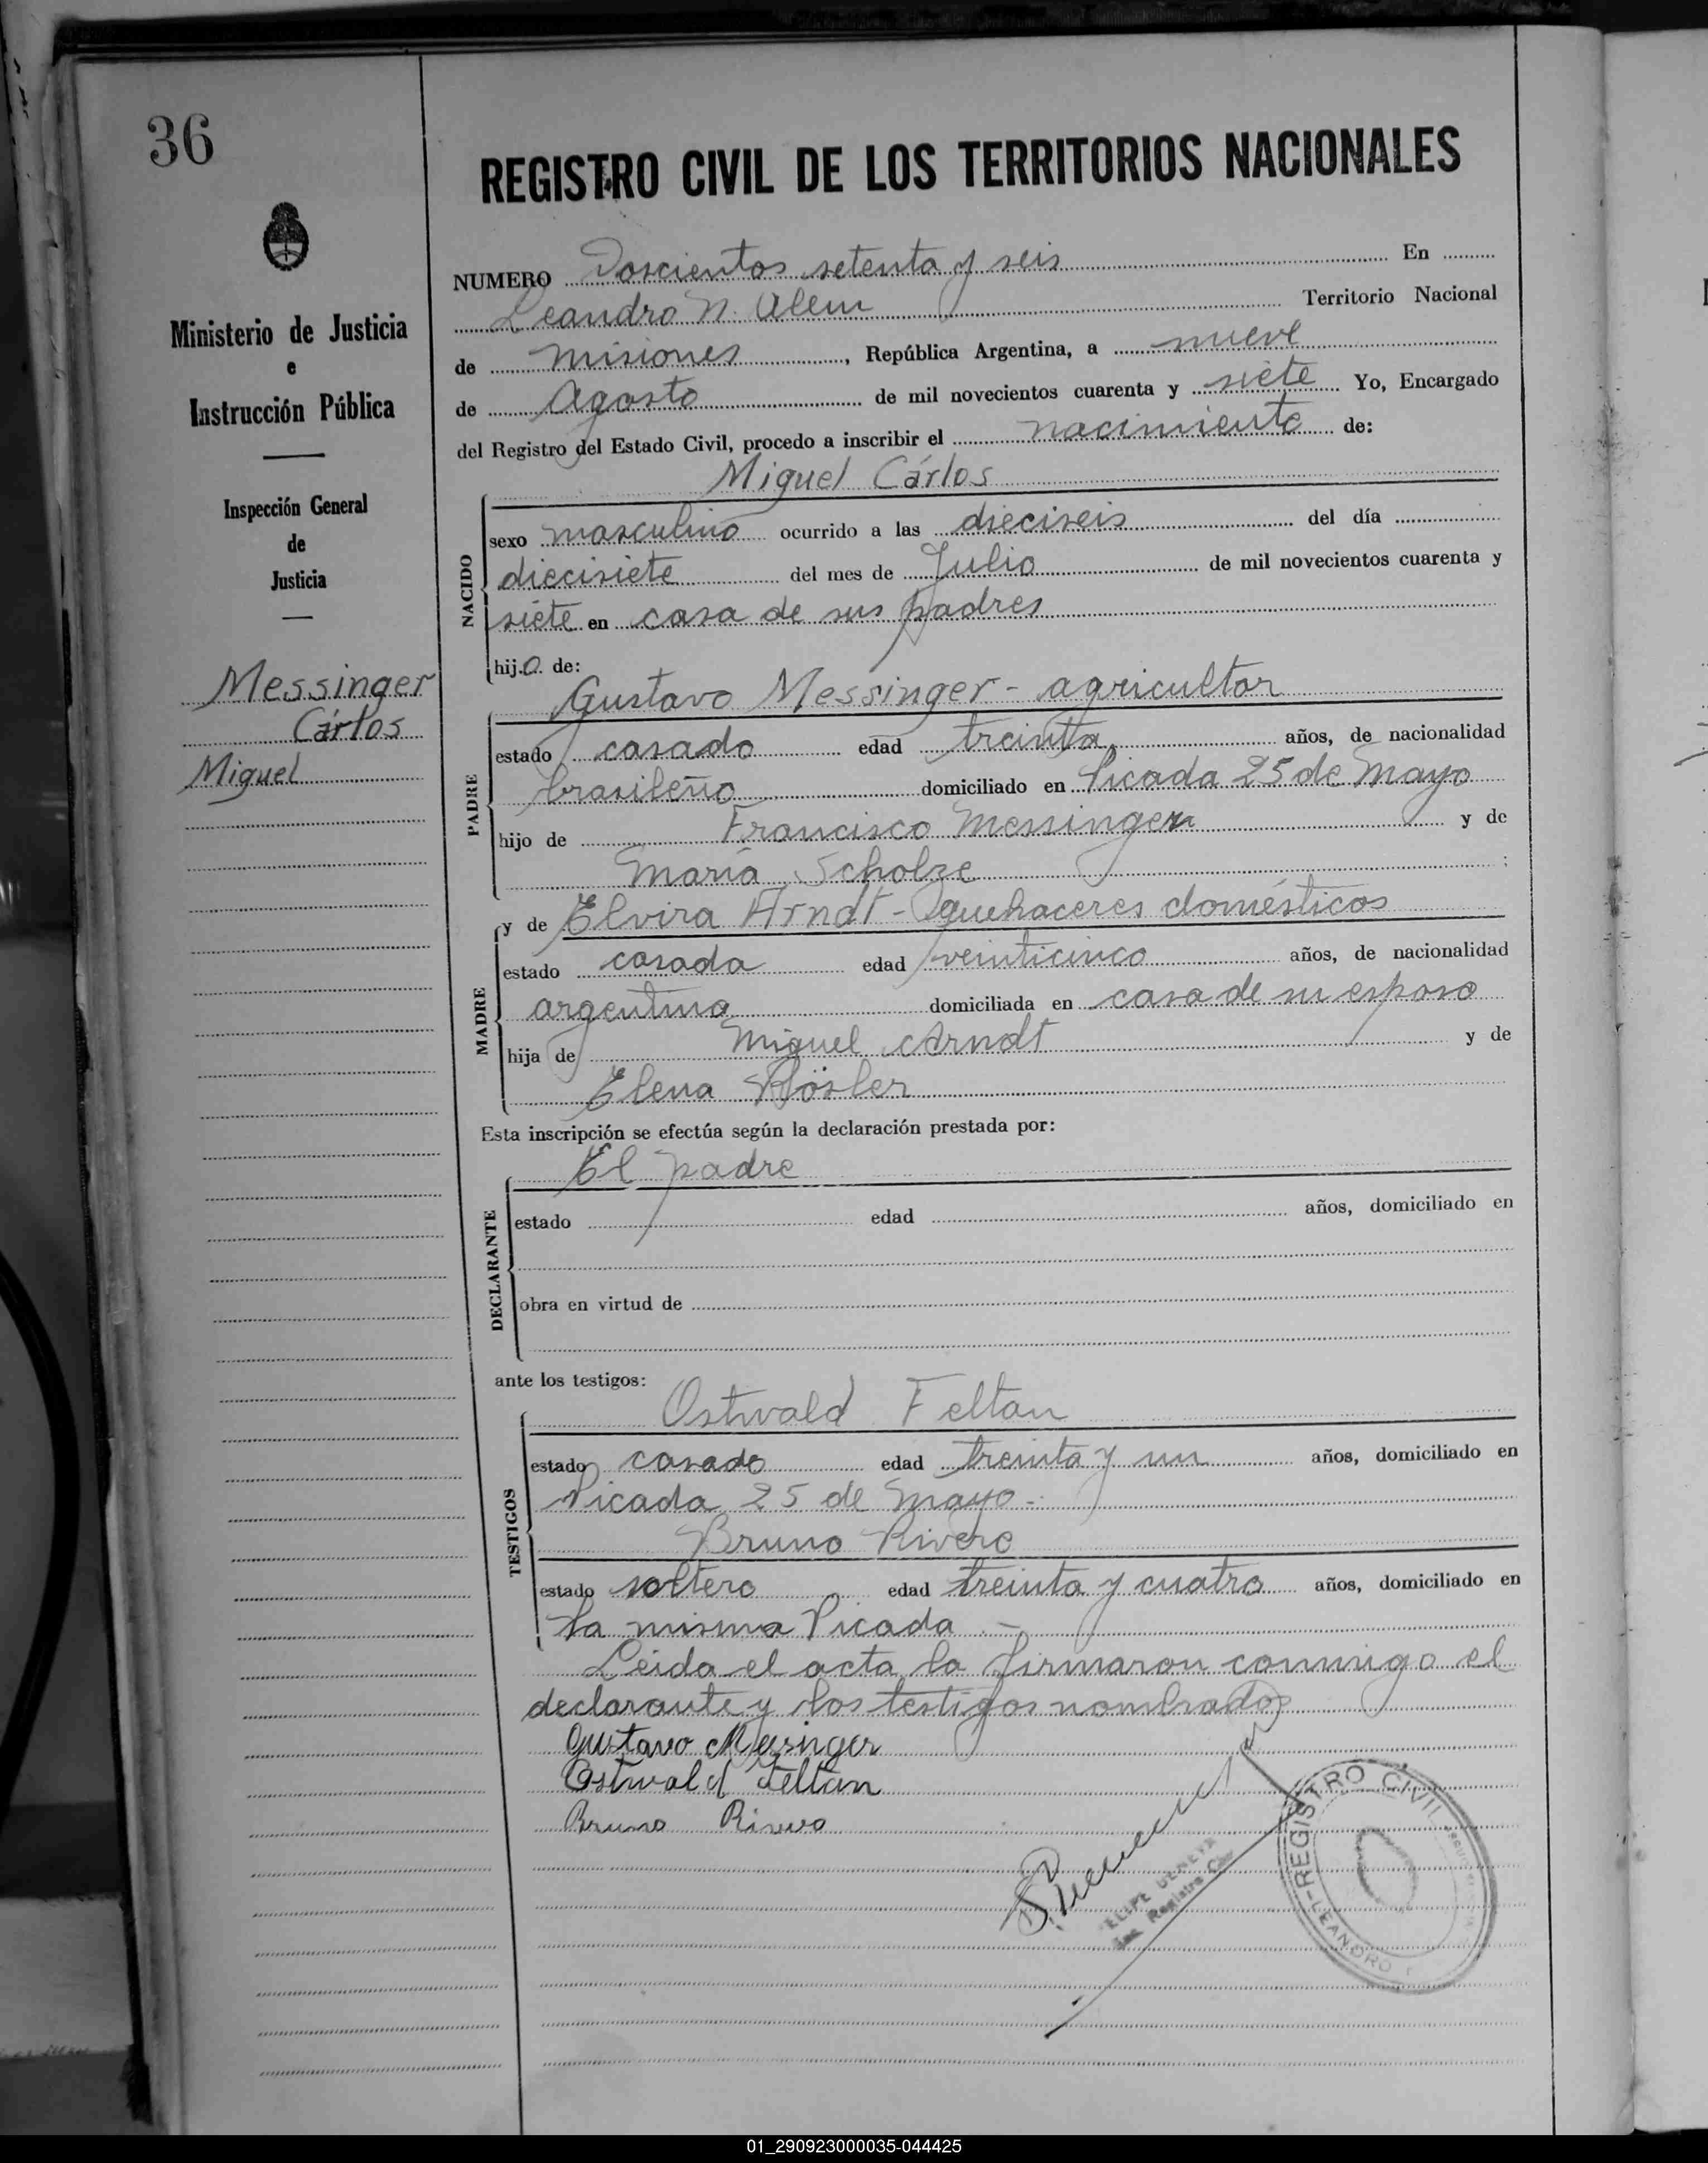 36
REGISTRO CIVIL DE LOS TERRITORIOS NACIONALES
Ministerio de Justicia
e
Instrucción Pública
Inspección General
de
Justicia
Messinger
Cárlos
Miguel
NUMERO Doscientos setenta y seis En
Leandro N. Alem Territorio Nacional
de Misiones, República Argentina, a nueve
de Agosto de mil novecientos cuarenta y siete Yo, Encargado
del Registro del Estado Civil, procedo a inscribir el nacimiento de:
Miguel Cárlos
NACIDO
sexo masculino ocurrido a las dieciseis del día
diecisiete del mes de Julio de mil novecientos cuarenta y
siete en casa de sus padres
hijo de:
Gustavo Messinger - agricultor
PADRE
estado casado edad treinta años, de nacionalidad
brasileño domiciliado en Picada 25 de Mayo
hijo de Francisco Messinger y de
María Scholze ;
y de Elvira Arndt - quehaceres domésticos
MADRE
estado casada edad veinticinco años, de nacionalidad
argentina domiciliada en casa de su esposo
hija de Miguel Arndt y de
Elena Rösler
Esta inscripción se efectúa según la declaración prestada por:
El padre
DECLARANTE
estado edad años, domiciliado en
obra en virtud de
ante los testigos:
Ostwald Feltan
TESTIGOS
estado casado edad treinta y un años, domiciliado en
Picada 25 de Mayo.-
Bruno Rivero
estado soltero edad treinta y cuatro años, domiciliado en
la misma Picada.-
Leida el acta la firmaron conmigo el
declarante y los testigos nombrados
Gustavo Messinger
Ostwald Feltan
Bruno Rivero
REGISTRO CIVIL
LEANDRO
01_290923000035-044425